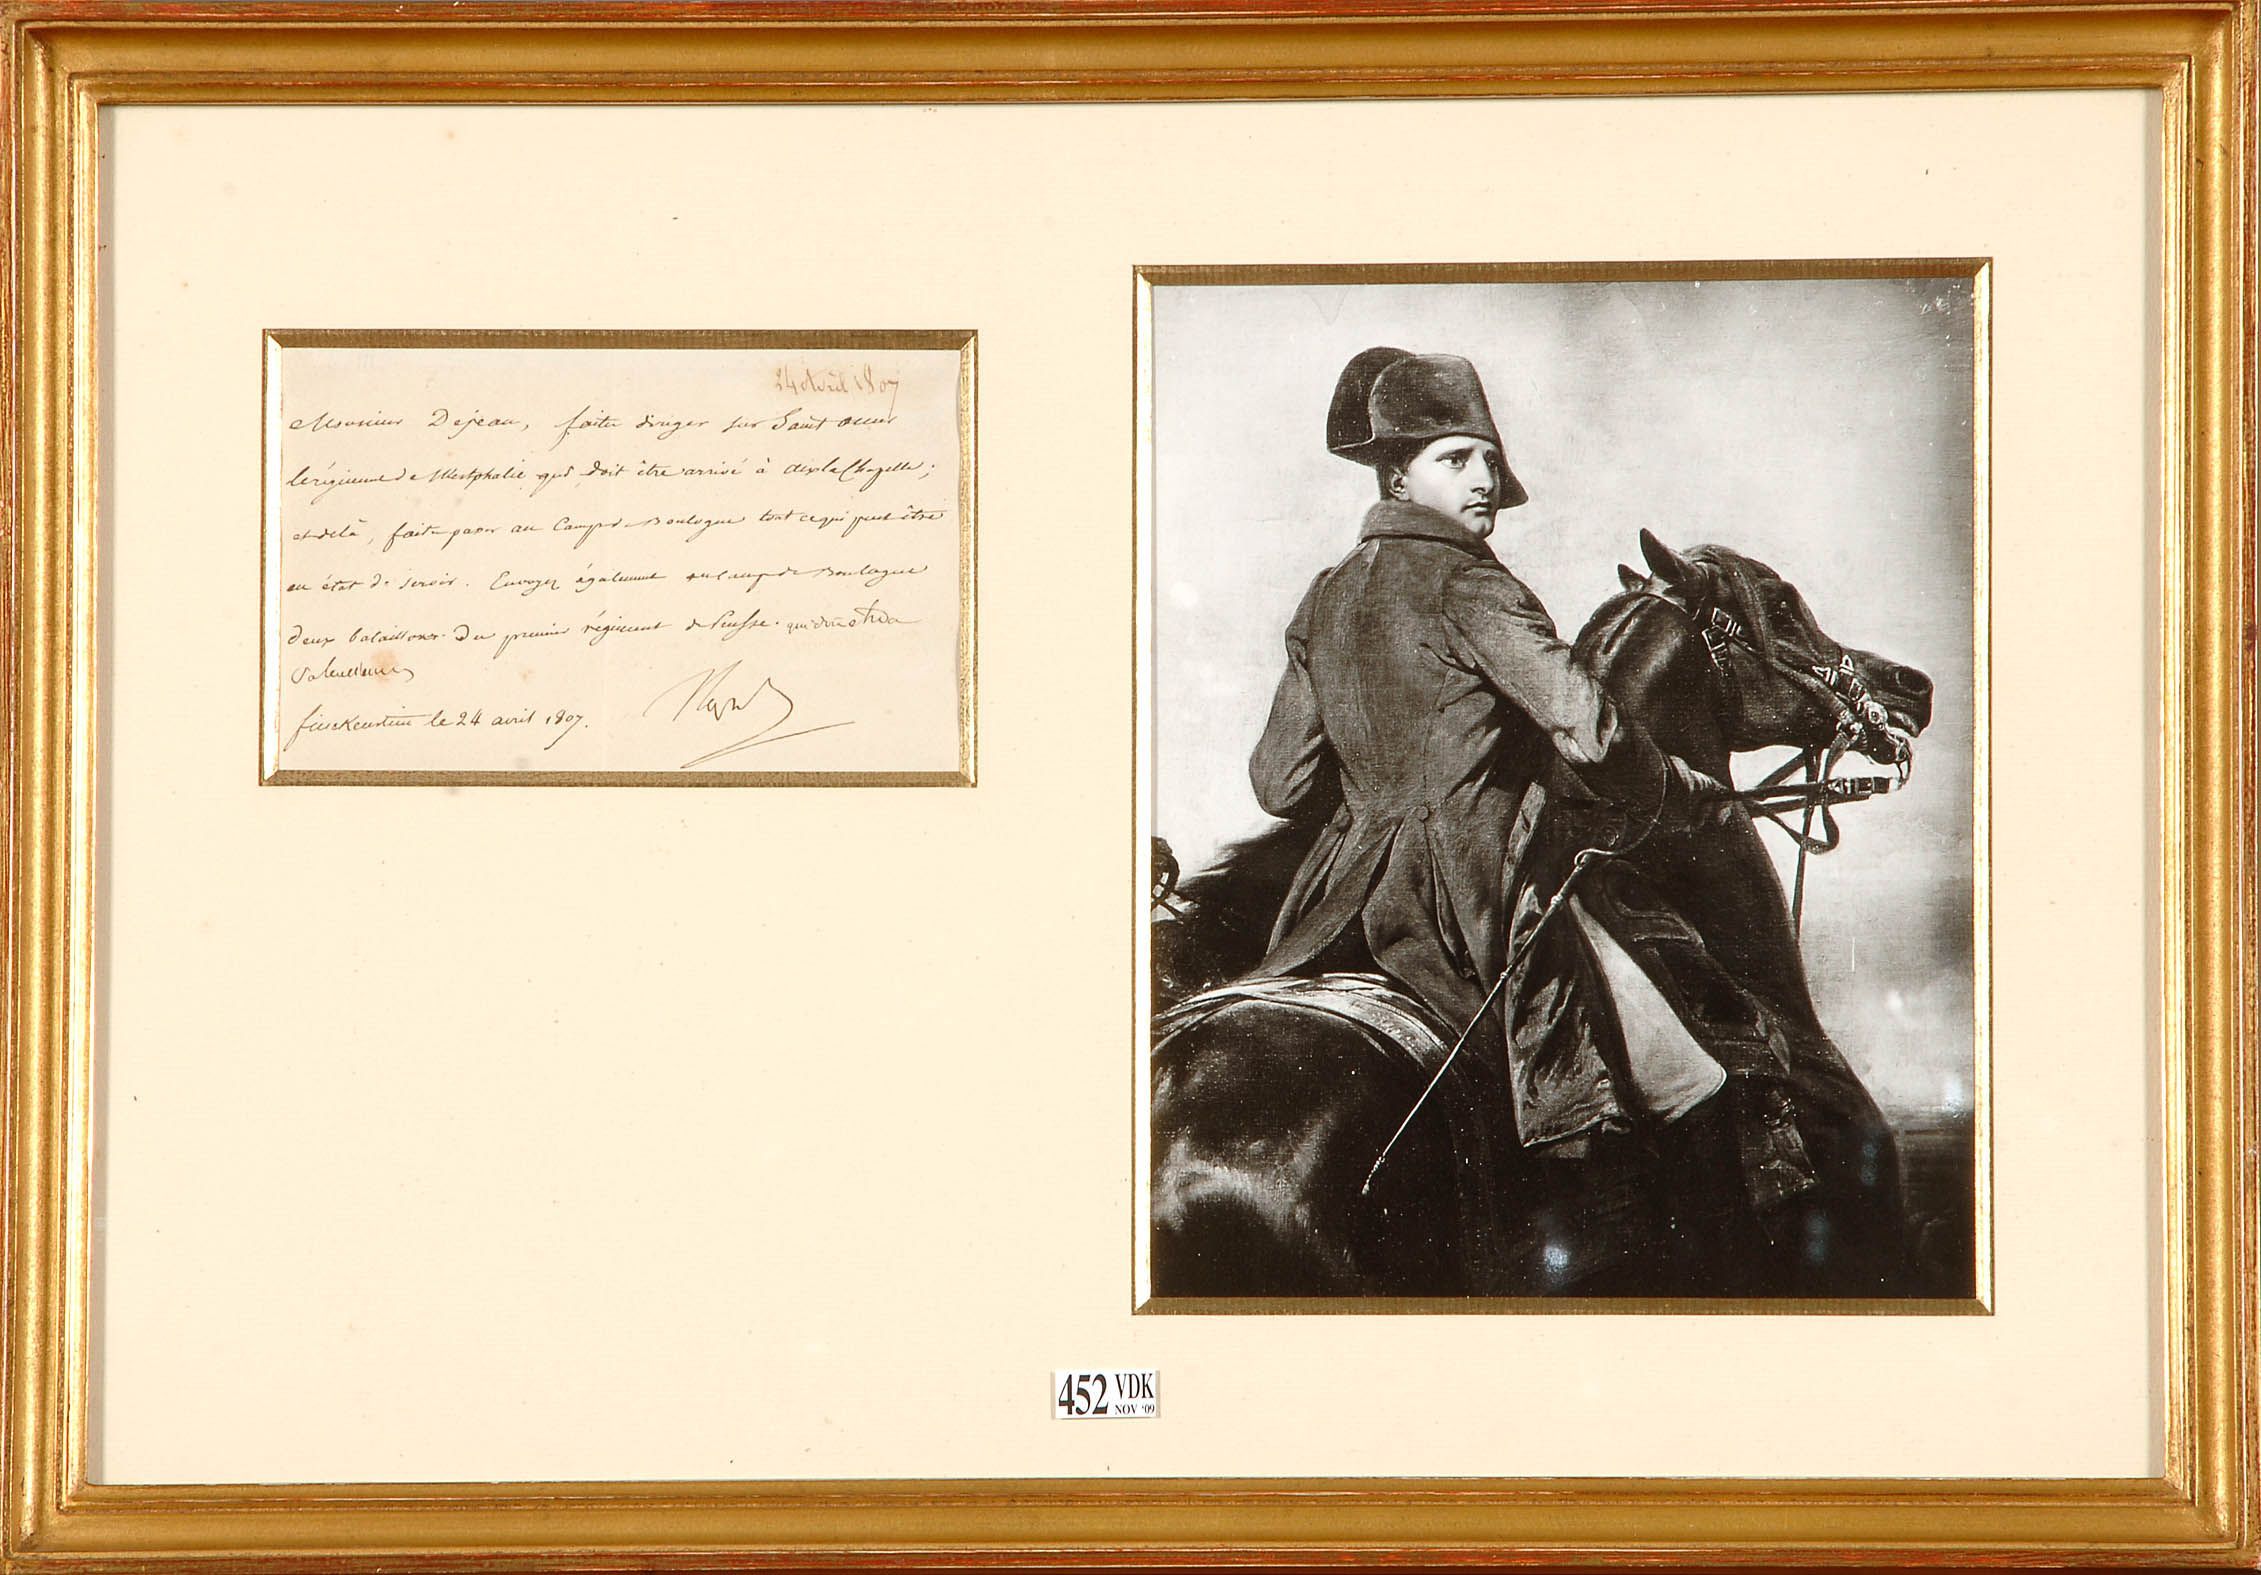 24 avril 1807
Monsieur Dejean, faites diriger sur Saint Omer
le régiment de Westphalie qui doit être arrivé à aix la Chapelle ;
et de là, faites passer au Camp de Boulogne tout ce qui peut être
en état de servir. Envoyez également au camp de Boulogne
deux bataillons du premier régiment de Prusse. qui doit être à
Valenciennes
finckenstein le 24 avril 1807.
Nap
452 VDK
NOV '09